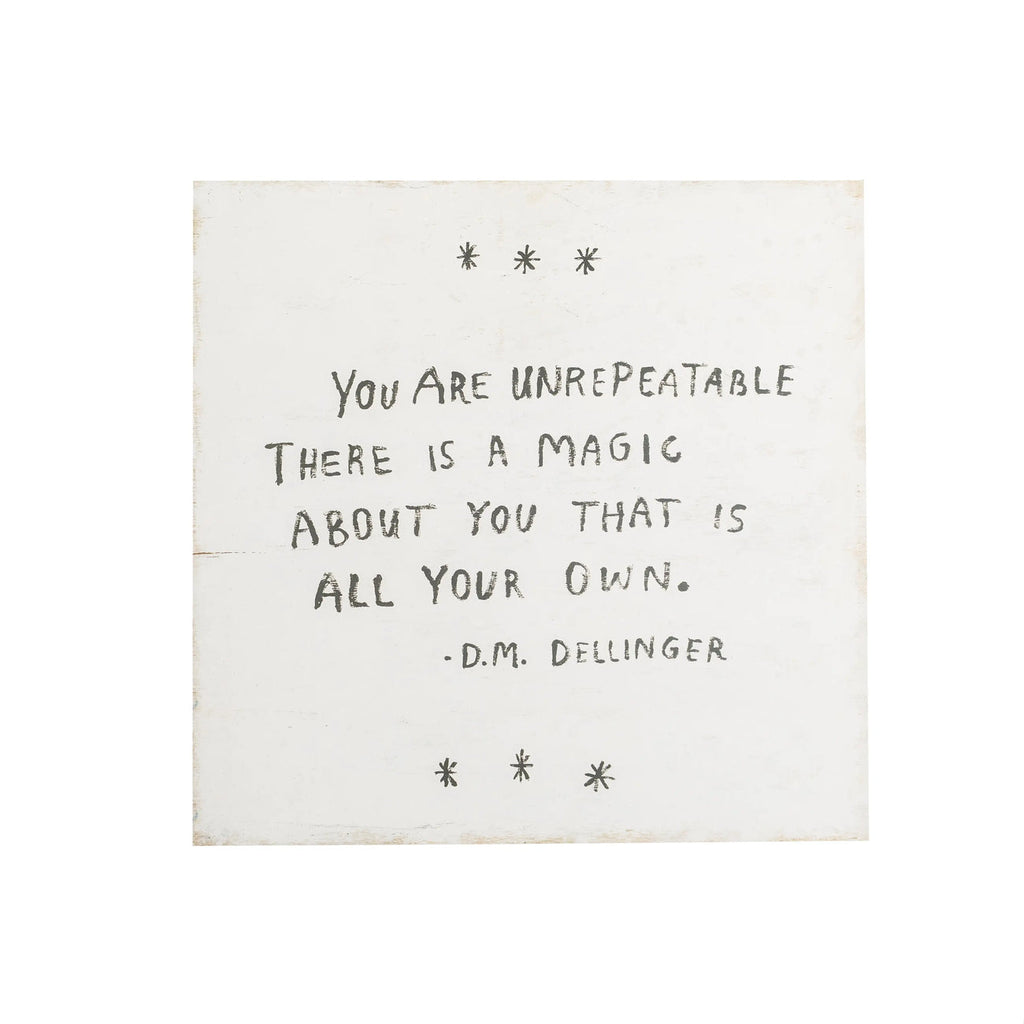 * * *
YOU ARE UNREPEATABLE
THERE IS A MAGIC
ABOUT YOU THAT IS
ALL YOUR OWN.
-D.M. DELLINGER
* * *